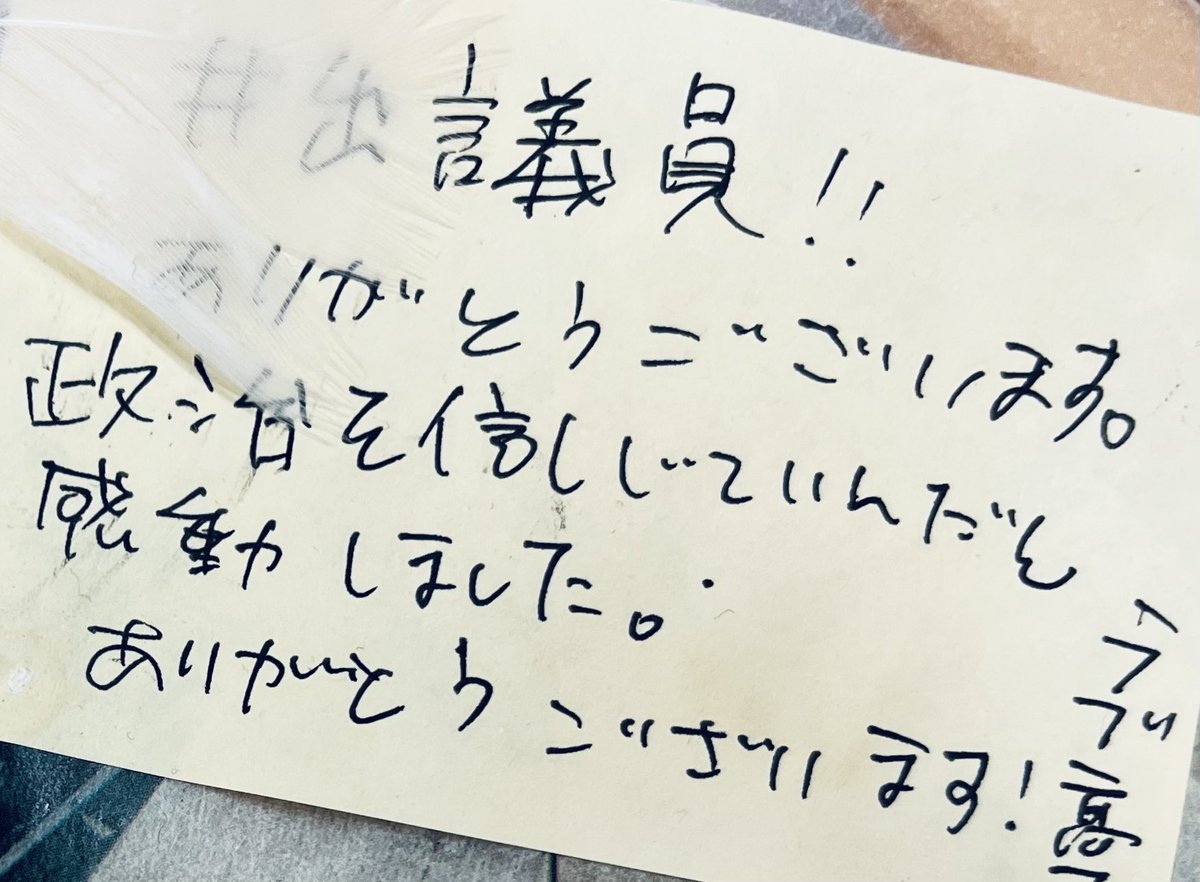 井出議員!!
ありがとうございます。
政治を信じていんだと
感動しました。
ありがとうございます!
ラブ